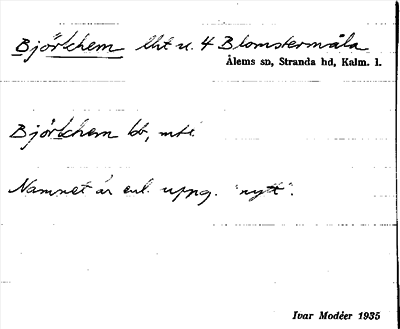 Björkhem lht u. 4 Blomstermåla
Ålems sn, Stranda hd, Kalm. l.
Björkhem bb, mte
Namnet är enl. uppg. "nytt".
Ivar Modéer 1935